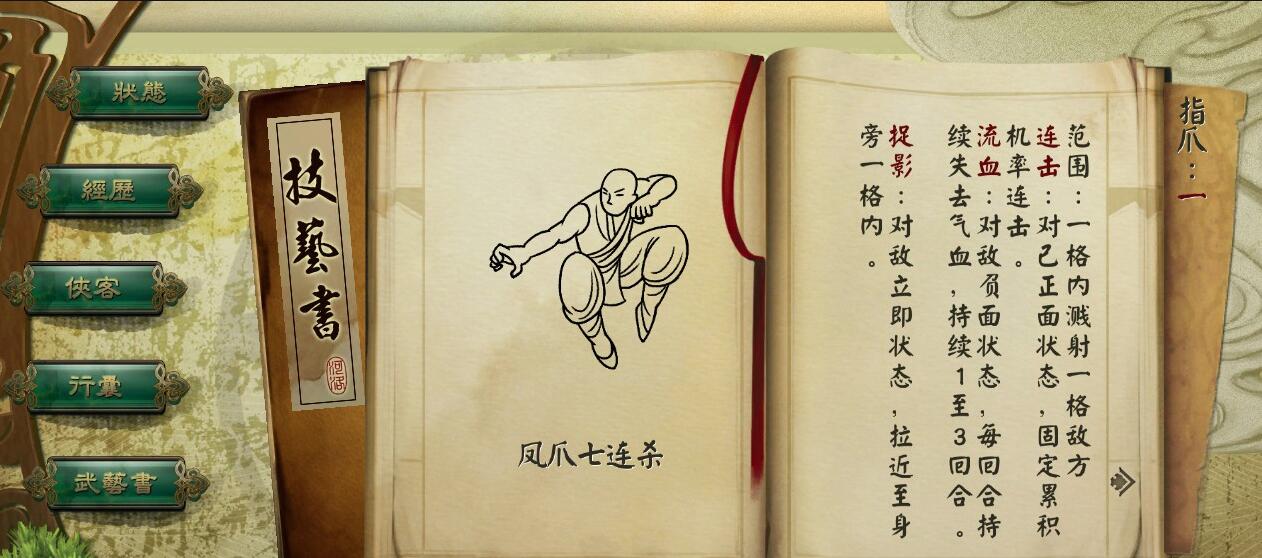 狀態
經歷
俠客
行囊
武藝書
技藝書
河洛
凤爪七连杀
范围：一格内溅射一格敌方
连击：对己正面状态，固定累积
机率连击。
流血：对敌负面状态，每回合持
续失去气血，持续1至3回合。
捉影：对敌立即状态，拉近至身
旁一格内。
指爪：一